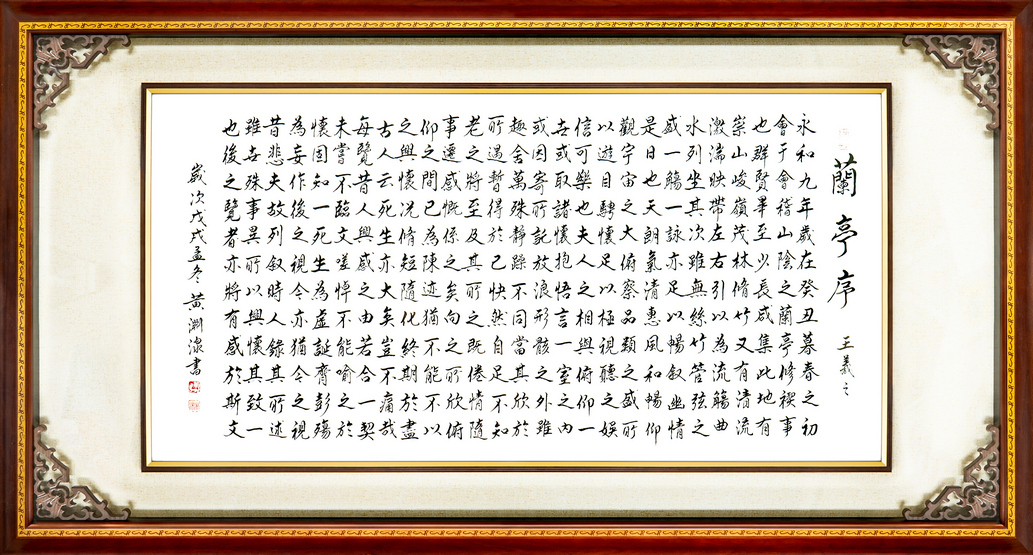 蘭亭序 王羲之
永和九年歲在癸丑暮春之初
會于會稽山陰之蘭亭修禊事
也群賢畢至少長咸集此地有
崇山峻嶺茂林脩竹又有清流
激湍映帶左右引以為流觴曲
水列坐其次雖無絲竹管弦之
盛一觴一詠亦足以暢叙幽情
是日也天朗氣清惠風和暢仰
觀宇宙之大俯察品類之盛所
以遊目騁懷足以極視聽之娛
信可樂也夫人之相與俯仰一
世或取諸懷抱悟言一室之內
或因寄所託放浪形骸之外雖
趣舍萬殊靜躁不同當其欣於
所遇暫得於己快然自足不知
老之將至及其所之既倦情隨
事遷感慨係之矣向之所欣俯
仰之間已為陳迹猶不能不以
之興懷況脩短隨化終期於盡
古人云死生亦大矣豈不痛哉
每覽昔人興感之由若合一契
未嘗不臨文嗟悼不能喻之於
懷固知一死生為虛誕齊彭殤
為妄作後之視今亦猶今之視
昔悲夫故列叙時人錄其所述
雖世殊事異所以興懷其致一
也後之覽者亦將有感於斯文
歲次戊戌孟冬 黃淵書